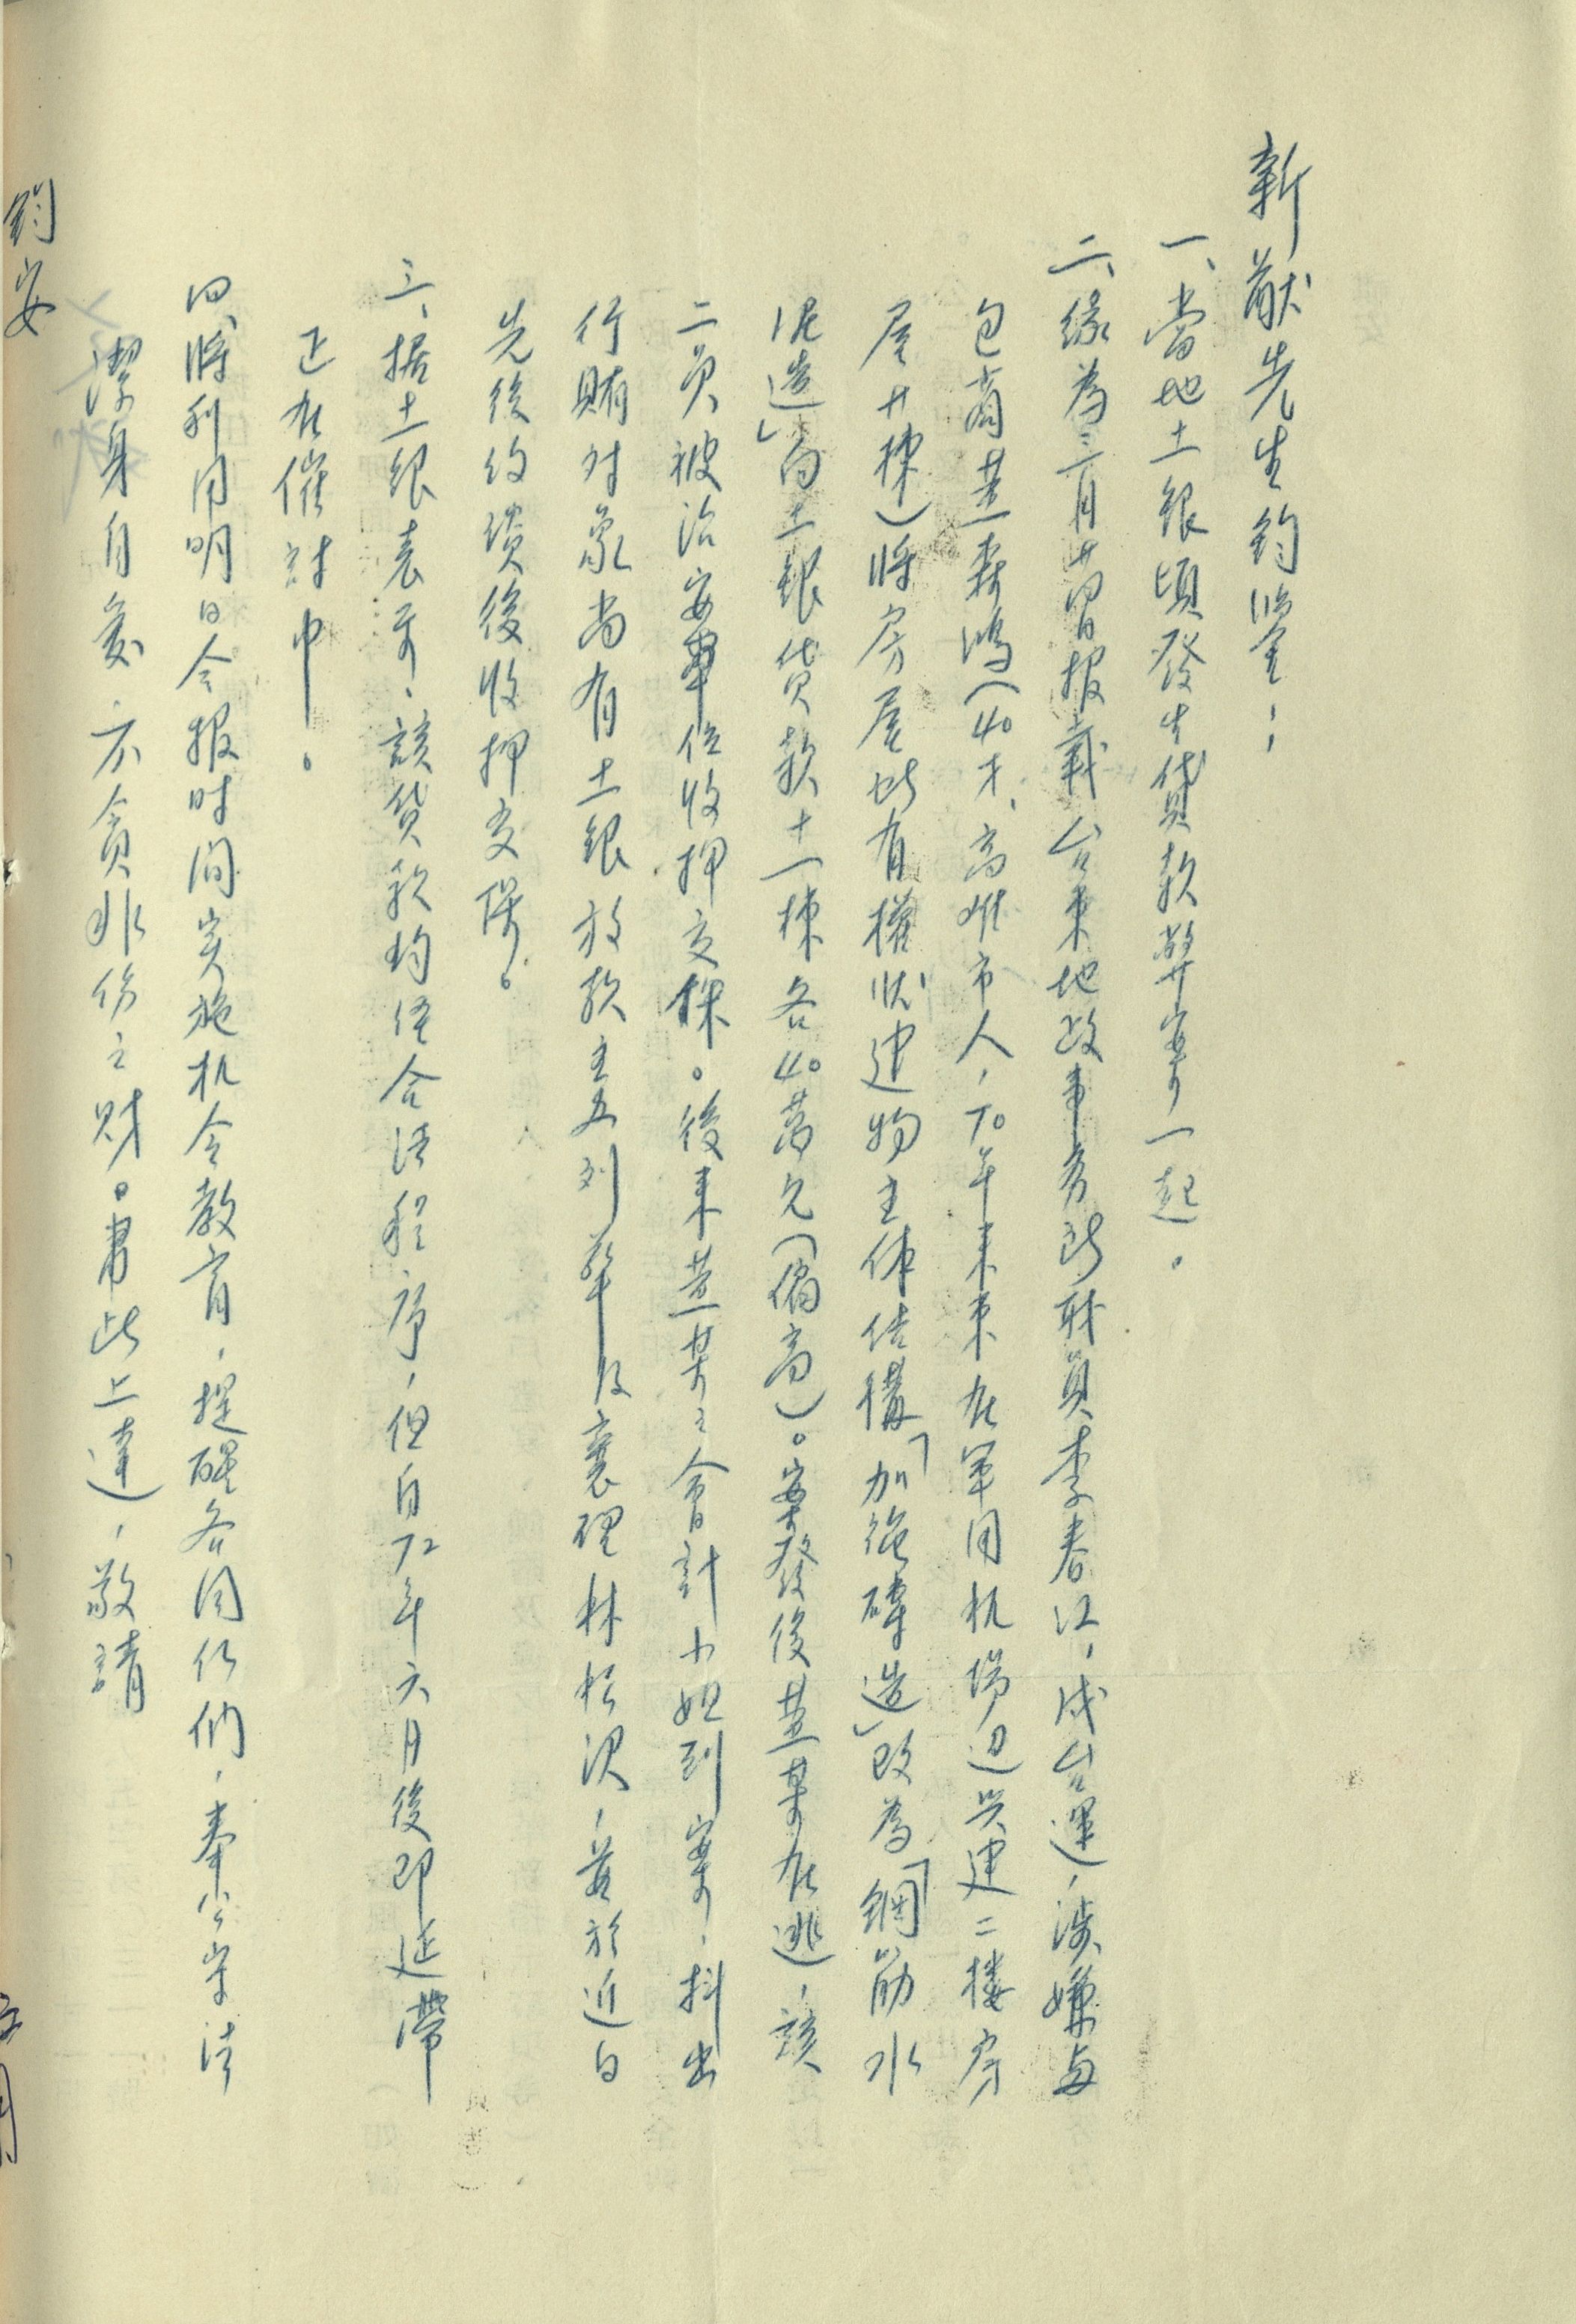 新猷先生鈞鑒：
一、當地土銀頃發生貸款弊案一起。
二、緣為三月廿四日報載台東地政事務所職員李春江，成台運，涉嫌與
包商董森鴻（40才、高雄市人，70年來東在軍用机場边兴建二楼房
屋廿棟）將房屋所有權狀建物主体結構「加強磚造」改為「鋼筋水
泥造」向土銀貸款十一棟各40萬元（偏高）。案發後董某在逃，該
二員被治安單位收押交保。後來董某之會計小姐到案，抖出
行賄对象尚有土銀放款主办刘肇及襄理林松次，并於近日
先後約談後收押交保。
三、据土銀表示，該貸款均經合法程序，但自72年六月後即延滯
正在催討中。
四、將利用明日会报时间实施机会教育，提醒各同仁们，奉公守法
潔身自愛，不貪非份之財。肅此上達，敬請
鈞安